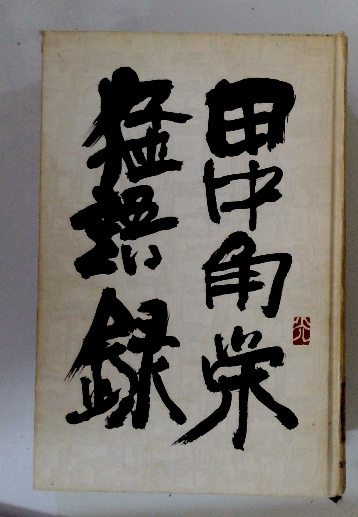 田中角栄
猛語録